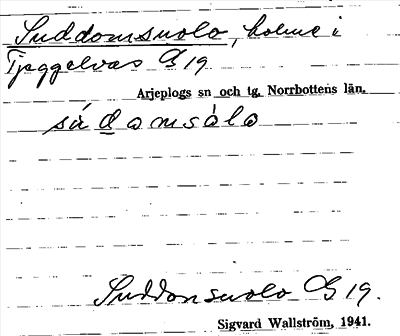 Suddomsuolo, holme i
Tjeggelvas G 19
Arjeplogs sn och tg. Norrbottens län.
sùdomsùlo
Suddomsuolo G 19.
Sigvard Wallström, 1941.